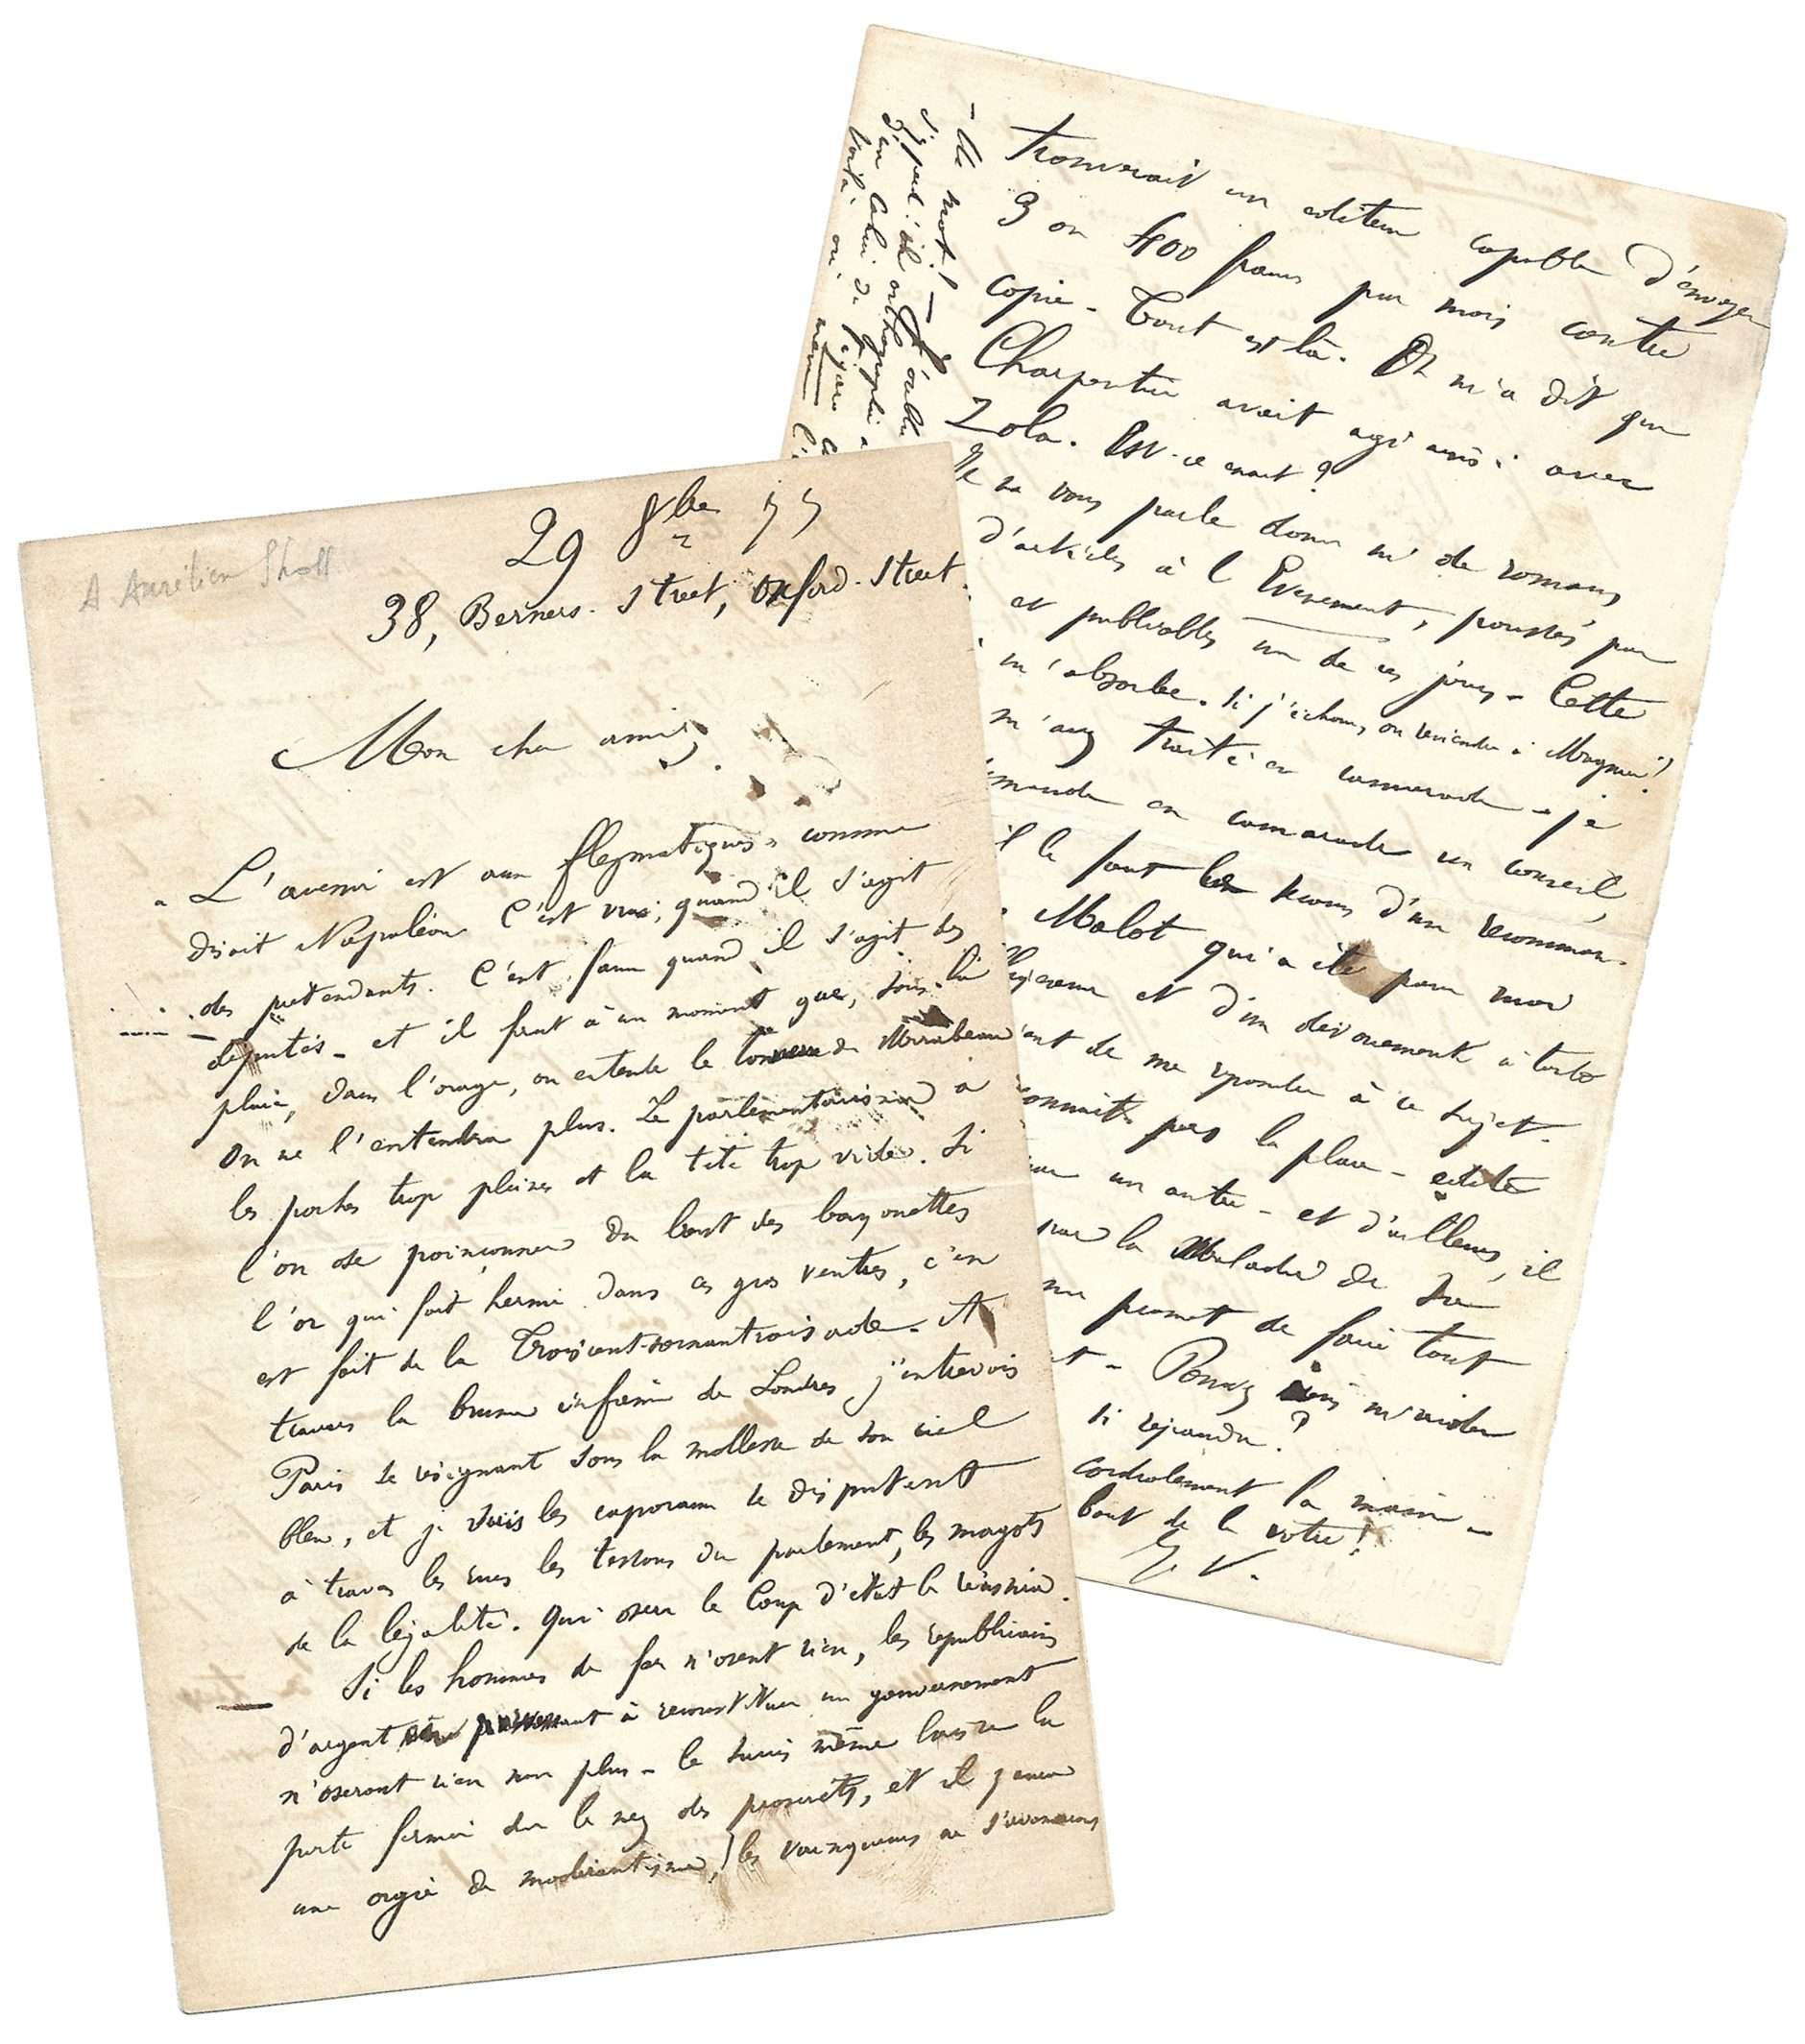 A Aurélien Sholl
29 8bre 77
38, Berners. Street, Oxford-Street.
Mon cher ami,
L'avenir est aux flegmatiques, comme
disait Napoléon C'est vrai, quand il s'agit
des prétendants. C'est faux quand il s'agit des
députés - et il faut à un moment que, sous la
pluie, dans l'orage, on entende le tonnerre de Mirabeau
On ne l'entendra plus. Le parlementarisme a
les poches trop pleines et la tête trop vide. Si
l'on ose poinçonner du bout des bayonettes
l'or qui fait hernie dans ces gros ventres, c'en
est fait de la Troiscent-soixantroisade. A
travers la brume infâme de Londres j'entrevois
Paris se résignant sous la mollesse de son ciel
bleu, et je vois les caporaux se disputent
à travers les rues les testons du parlement, les magots
de la légalité. Qui osera le Coup d'état le réussira.
Si les hommes de fer n'osent rien, les républicains
d'argent à reconstituer un gouvernement
n'oseront rien non plus - le succès même laissera la
porte fermée sur le nez des proscrits, et il y aura
une orgie de modérantisme, les vainqueurs ne s'avançons
trouverait un éditeur capable d'envoyer
3 ou 400 francs par mois contre
copie - Tout est là. On m'a dit que
Charpentier avait agi ainsi avec
Zola. Est-ce exact ?
Je ne vous parle donc ni de romans
d'articles à l'Evenement, poussés par
et publiables un de ces jours - Cette
m'absorbe. Si j'échoue, on reviendra à Magnier !
m'avez traité en camarade - je
demande en camarade un conseil,
il le faut le secours d'une recomman-
Malot qui a été pour moi
et d'un dévouement à toute
de me répondre à ce sujet.
connaître pas la place - édité
un autre - et d'ailleurs, il
par la Maladie de sa
me promet de faire tout
- Pouvez vous m'aider
si répandu ?
cordialement la main -
bout de la votre !
J. V.
- le mot ! -